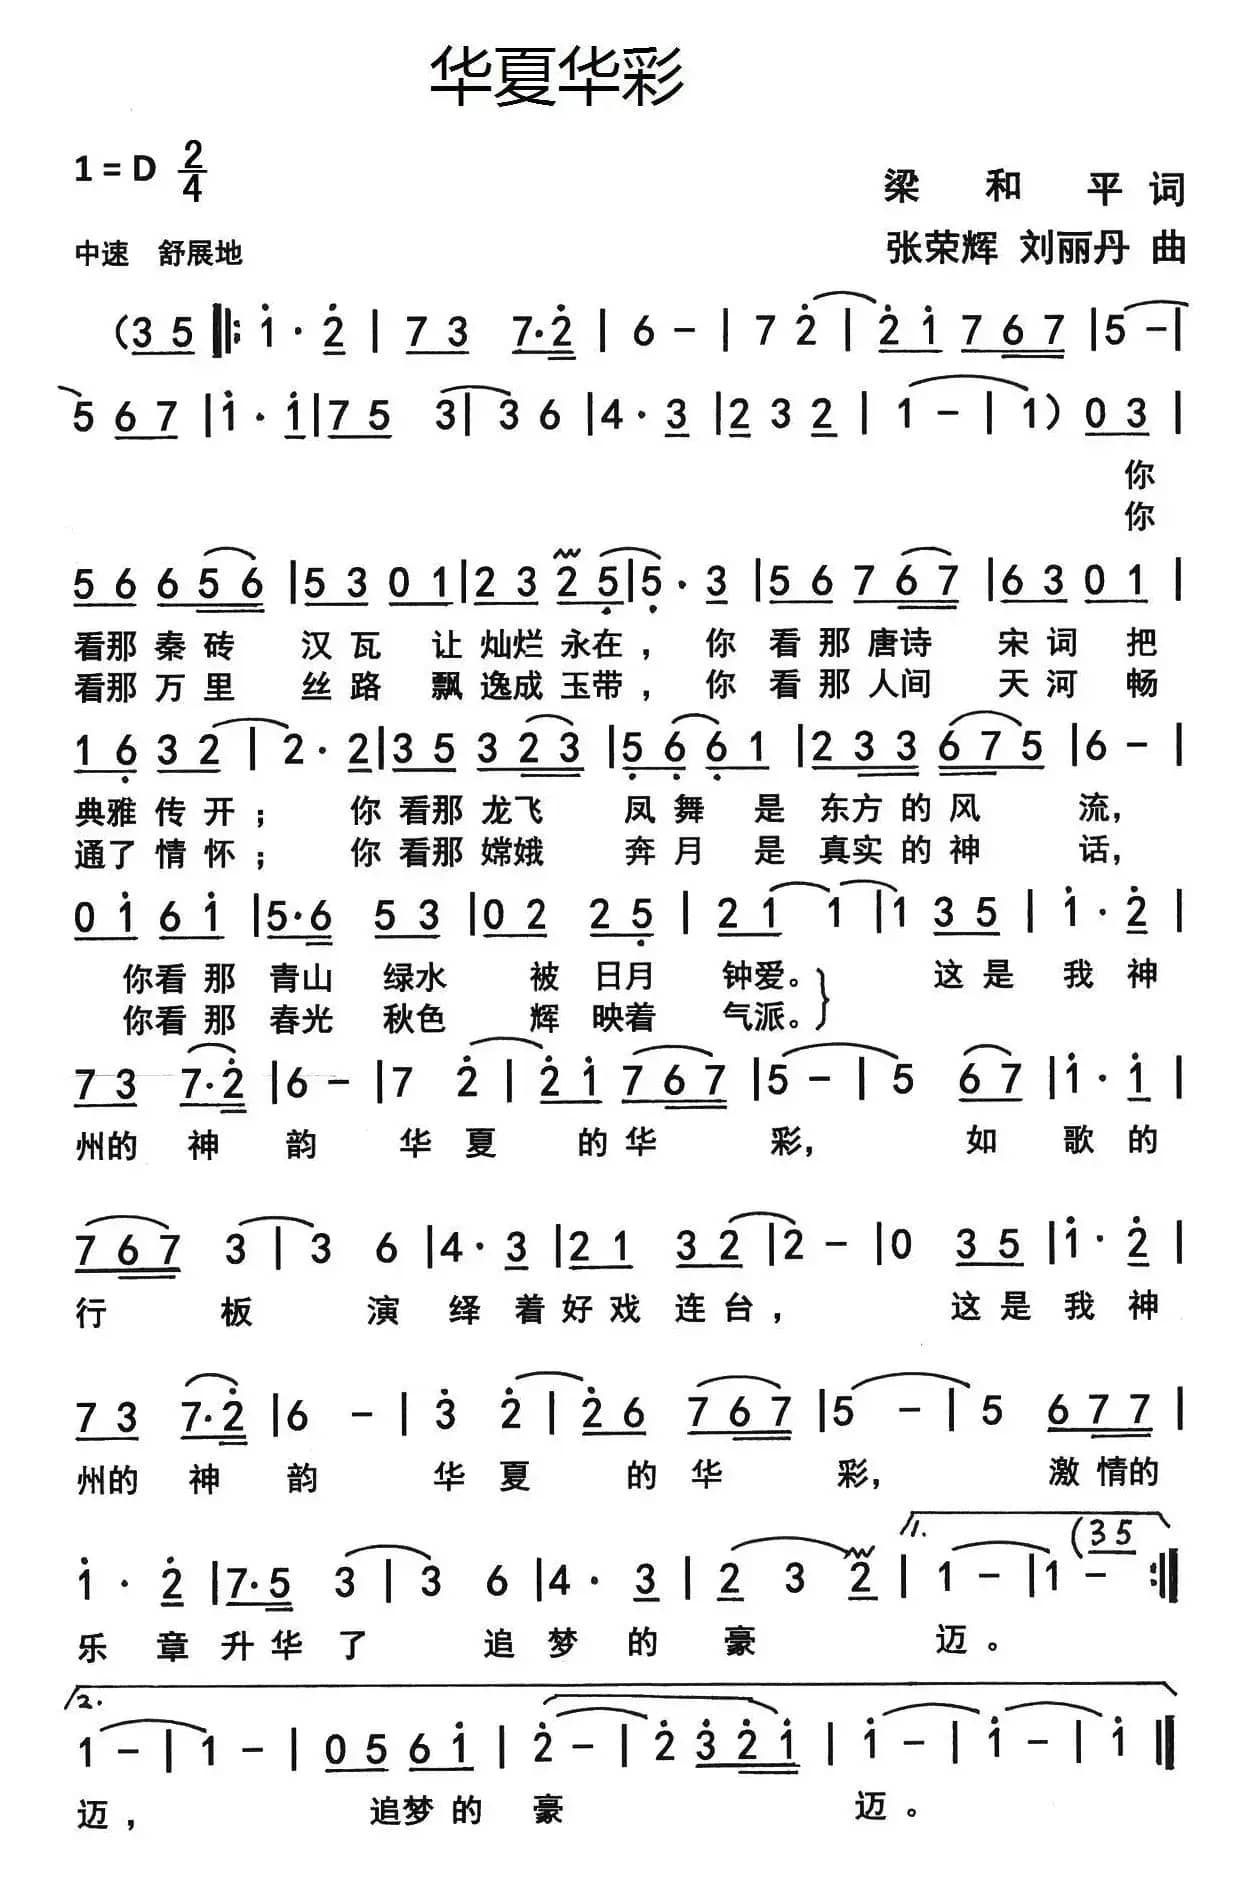 华夏华彩
1 = D 2/4
梁 和 平 词
中速 舒展地
张荣辉 刘丽丹 曲
(3 5 ‖: 1̇ · 2̇ | 7 3 7 · 2̇ | 6 – | 7 2̇ | 2̇ 1̇ 7 6 7 | 5 – |
5 6 7 | 1̇ · 1̇ | 7 5 3 | 3 6 | 4 · 3 | 2 3 2 | 1 – | 1 ) 0 3 |
你
你
5 6 6 5 6 | 5 3 0 1 | 2 3 2 5̣ | 5̣ · 3 | 5 6 7 6 7 | 6 3 0 1 |
看那 秦 砖 汉 瓦 让 灿烂 永在， 你 看 那 唐诗 宋 词 把
看那 万 里 丝 路 飘 逸成 玉带， 你 看 那 人间 天 河 畅
1 6̣ 3 2 | 2 · 2 | 3 5 3 2 3 | 5̣ 6̣ 6̣ 1 | 2 3 3 6 7 5 | 6 – |
典雅 传 开； 你 看那 龙飞 凤 舞 是 东方 的 风 流，
通了 情 怀； 你 看那 嫦娥 奔 月 是 真实 的 神 话，
0 1̇ 6 1̇ | 5 · 6 5 3 | 0 2 2 5̣ | 2 1 1 | 1 3 5 | 1̇ · 2̇ |
你看 那 青山 绿水 被 日月 钟爱。 这 是 我 神
你看 那 春光 秋色 辉 映着 气派。
7 3 7 · 2̇ | 6 – | 7 2̇ | 2̇ 1̇ 7 6 7 | 5 – | 5 6 7 | 1̇ · 1̇ |
州的 神 韵 华 夏 的 华 彩， 如 歌 的
7 6 7 3 | 3 6 | 4 · 3 | 2 1 3 2 | 2 – | 0 3 5 | 1̇ · 2̇ |
行 板 演 绎 着 好 戏 连 台， 这 是 我 神
7 3 7 · 2̇ | 6 – | 3̇ 2̇ | 2̇ 6 7 6 7 | 5 – | 5 6 7 7 |
州的 神 韵 华 夏 的 华 彩， 激 情的
1. (3 5
1̇ · 2̇ | 7 · 5 3 | 3 6 | 4 · 3 | 2 3 2 | 1 – | 1 – :‖
乐 章 升 华 了 追 梦 的 豪 迈。
2.
1 – | 1 – | 0 5 6 1̇ | 2̇ – | 2̇ 3̇ 2̇ 1̇ | 1̇ – | 1̇ – | 1̇ ‖
迈， 追梦 的 豪 迈。